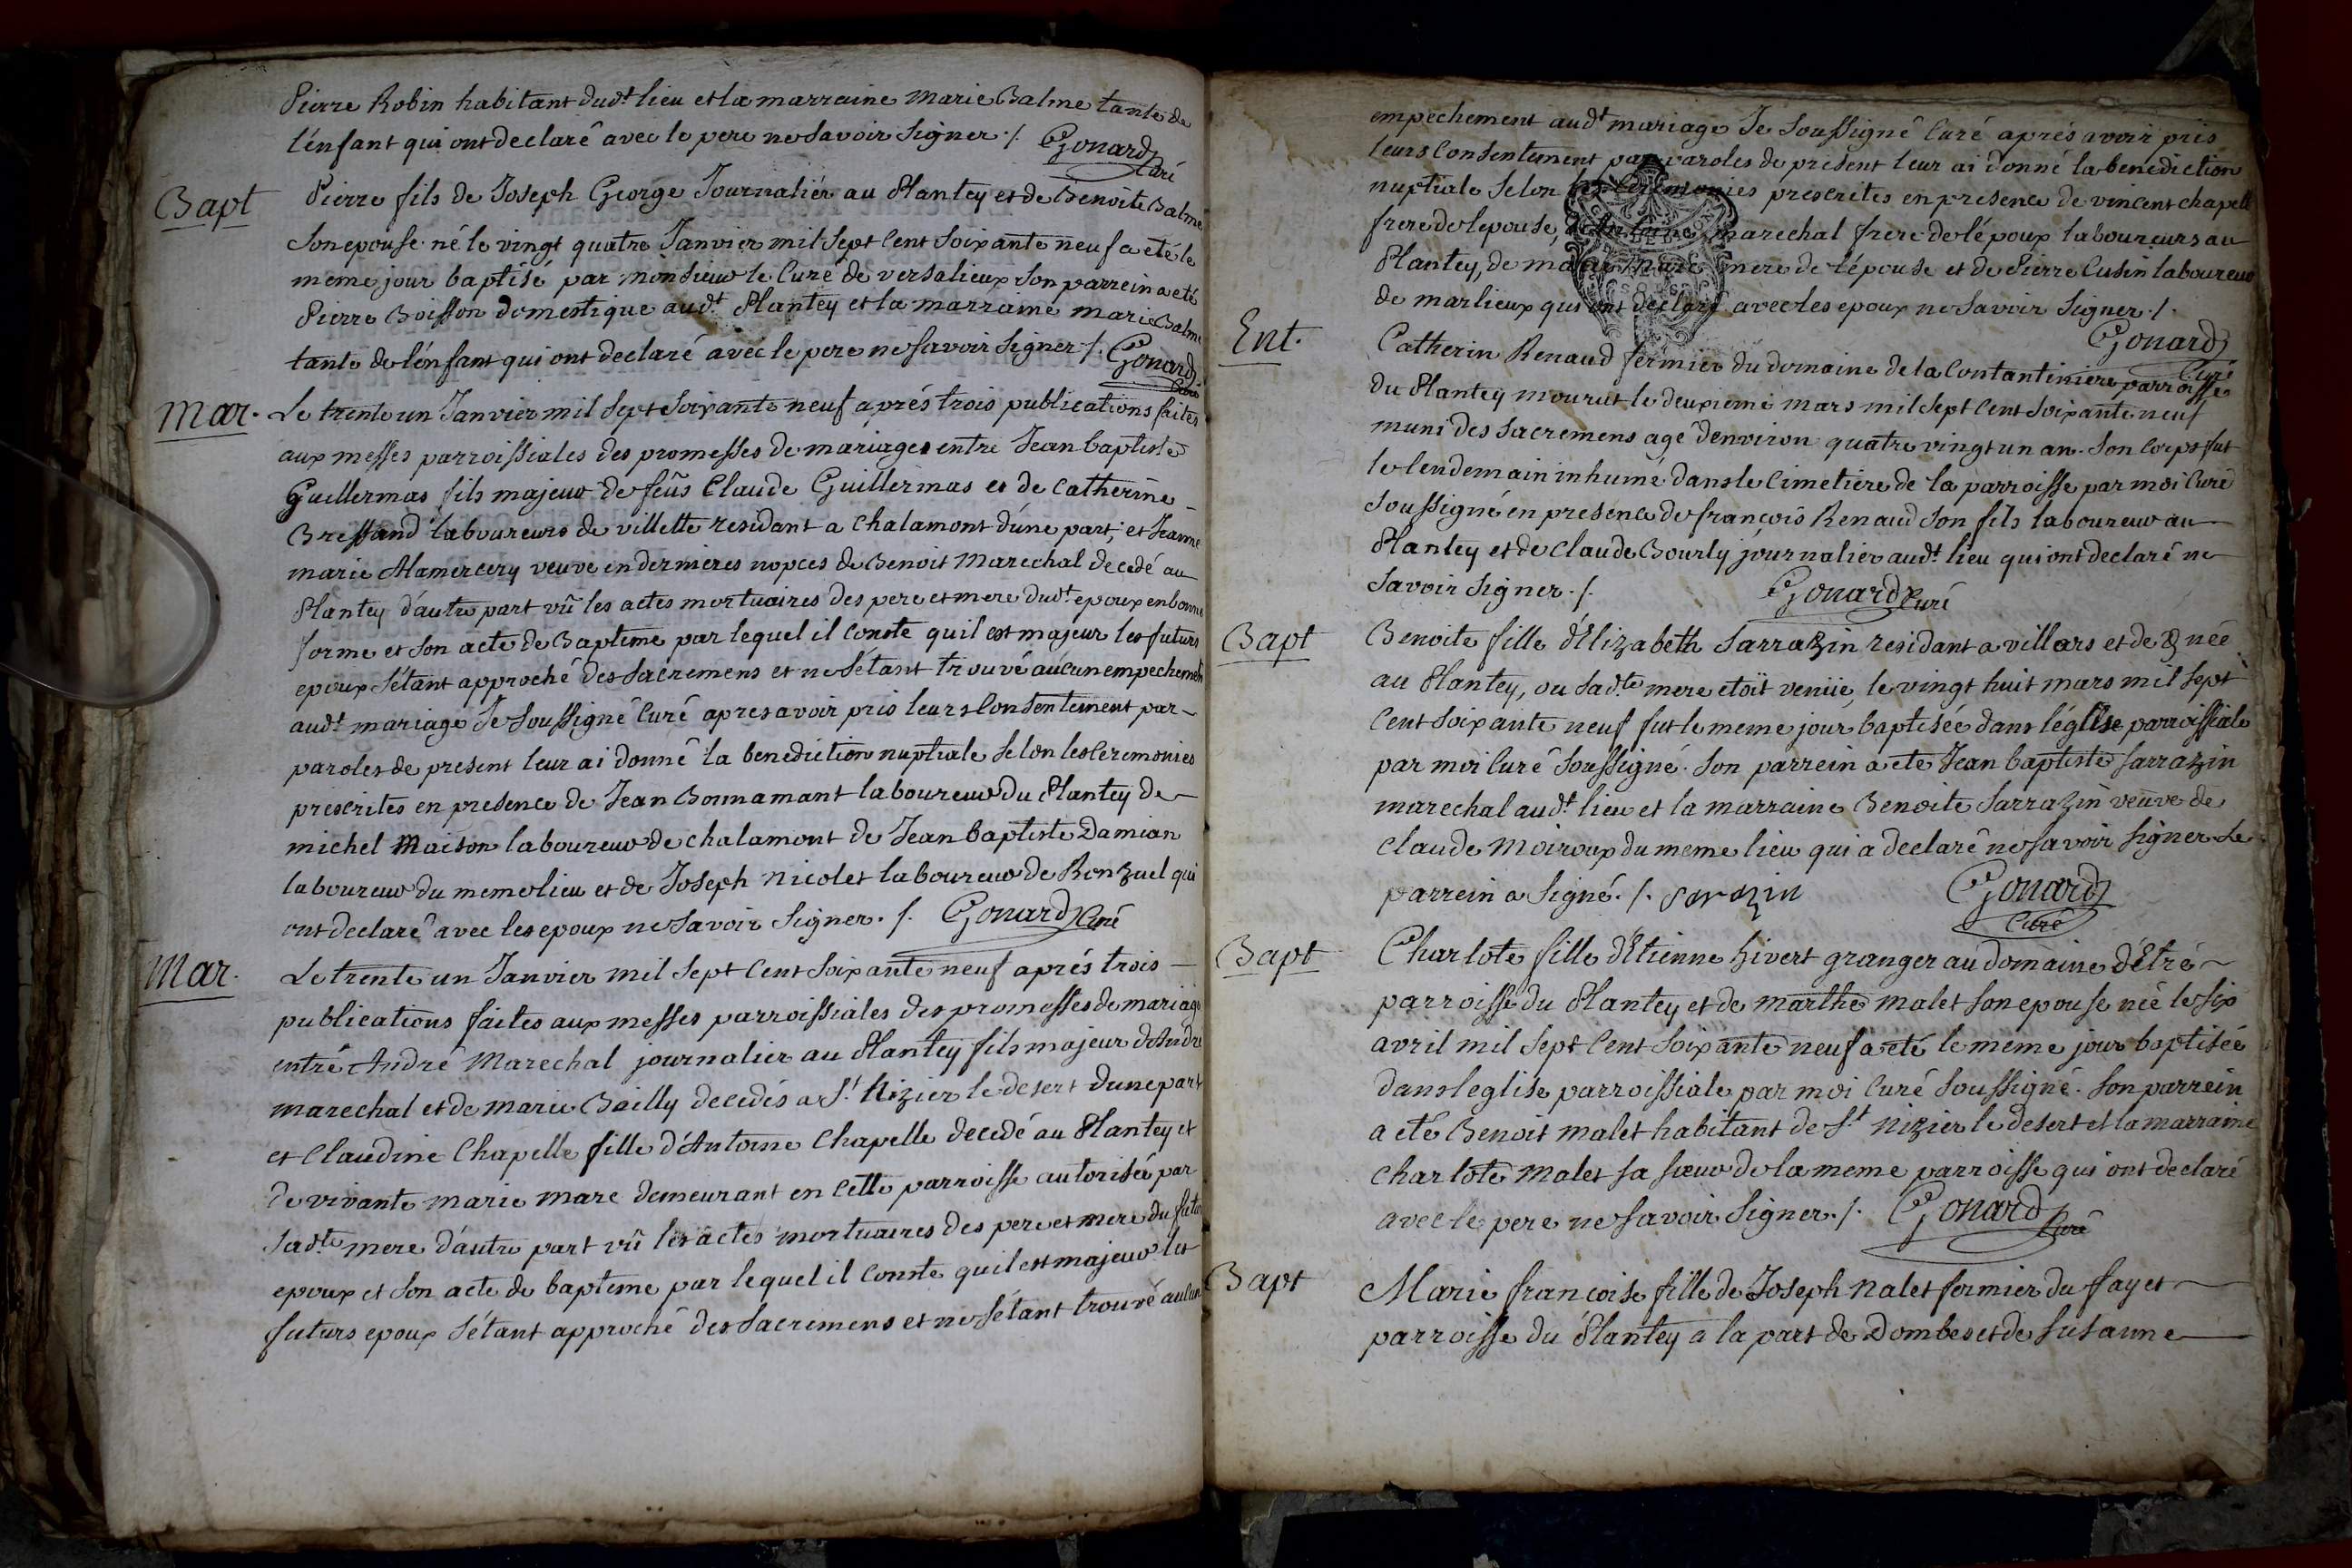 Pierre Robin habitant dudt lieu et la marraine Marie Balme tante de
l'énfant qui ont declaré avec le pere ne savoir signer ./. Gonard
Curé
Bapt
Pierre fils de Joseph George Journaliér au Plantey et de Benoite Balme
son epouse né le vingt quatre Janvier mil sept cent soixante neuf a eté le
meme jour baptisé par monsieur le Curé de versalieux son parrein a eté
Pierre Boisson domestique audt Plantey et la marraine marie Balme
tante de l'énfant qui ont declaré avec le pere ne savoir signer ./. Gonard
Curé
Mar.
Le trente un Janvier mil sept soixante neuf aprés trois publications faites
aux messes parroissiales des promesses de mariages entre Jean baptiste
Guillermas fils majeur de feûs Claude Guillermas et de Catherine
Bressand laboureurs de villette residant a Chalamont d'úne part, et Jeanne
marie Alamercery veuve en dernieres nopces de Benoit Marechal decedé au
Plantey d'autre part vû les actes mortuaires des pere et mere dudt epoux en bonne
forme et son acte de Baptême par lequel il conste qu'il est majeur les futurs
epoux s'étant approché des sacremens et ne s'étant trouvé aucun empechement
audt mariage Je soussigné Curé apres avoir pris leurs consentement par
paroles de present leur ai donné la benediction nuptiale selon les Ceremonies
prescrites en presence de Jean Bonnamant laboureur du Plantey de
michel Maison laboureur de chalamont de Jean baptiste Damian
laboureur du meme lieu et de Joseph nicolet laboureur de Ronzuel qui
ont declaré avec les epoux ne savoir signer. ./. Gonard Curé
Mar.
Le trente un Janvier mil sept cent soixante neuf aprés trois
publications faites aux messes parroissiales des promesses de mariage
entre André Marechal journalier au Plantey fils majeur d'André
marechal et de marie Bailly decedés a St Nizier le desert dune part
et Claudine Chapelle fille d'Antoine Chapelle decedé au Plantey et
de vivante marie mare demeurant en cette parroisse autorisée par
sadte mere d'autre part vû les actes mortuaires des pere et mere du futur
epoux et son acte de bapteme par lequel il conste qu'il est majeur les
futurs epoux s'étant approché des sacremens et ne s'étant trouvé aucun
empechement audt mariage Je soussigné Curé aprés avoir pris
leurs consentement par paroles de present leur ai donné la benediction
nuptiale selon les Ceremonies prescrites en presence de vincent chapelle
frere de lepouse, d'Antoine marechal frere de l'époux laboureurs au
Plantey, de marie mare mere de l'épouse et de Pierre Cusin laboureur
de marlieux qui ont declaré avec les epoux ne savoir signer ./.
Gonard
Curé
Ent.
Catherin Renaud fermier du domaine de la Contantiniere parroisse
du Plantey mourut le deuxieme mars mil sept cent soixante neuf
muni des sacremens agé d'environ quatre vingt un an. Son corps fut
le lendemain inhumé dans le cimetiere de la parroisse par moi Curé
soussigné en presence de françois Renaud son fils laboureur au
Plantey et de Claude Bourly journalier audt lieu qui ont declaré ne
savoir signer ./. Gonard Curé
Bapt
Benoite fille d'Elizabeth Sarrazin residant a villars et de & née
au Plantey, ou sadte mere etoit venüe, le vingt huit mars mil sept
cent soixante neuf fut le meme jour baptisée dans l'église parroissiale
par moi Curé soussigné. son parrein a eté Jean baptiste sarrazin
marechal audt lieu et la marraine Benoite Sarrazin veuve de
Claude Moiroux du meme lieu qui a declaré ne savoir signer Le
parrein a signé ./. sarazin Gonard
Curé
Bapt
Charlote fille d'Etienne hivert granger au domaine d'Etré
parroisse du Plantey et de marthe malet son epouse née le six
avril mil sept cent soixante neuf a eté le meme jour baptisée
dans l'eglise parroissiale par moi Curé soussigné. son parrein
a eté Benoit malet habitant de St nizier le desert et la marraine
Charlote malet sa sœur de la meme parroisse qui ont declaré
avec le pere ne savoir signer ./. Gonard
Curé
Bapt
Marie francoise fille de Joseph nalet fermier du fayet
parroisse du Plantey a la part de Dombes et de susanne